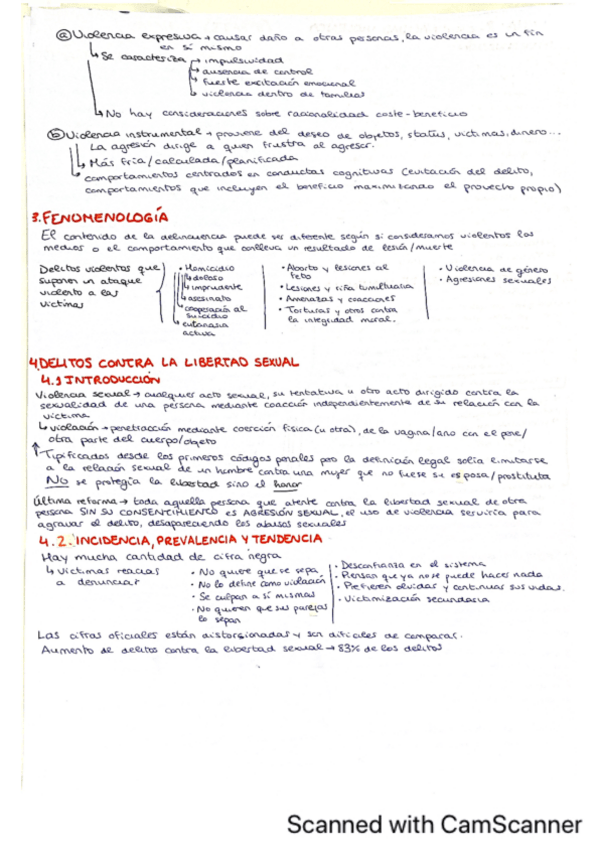 ⓐ Violencia expresiva → causar daño a otras personas, la violencia es un fin
en sí mismo
↳ Se caracteriza → impulsividad
↳ ausencia de control
↳ fuerte excitación emocional
↳ violencia dentro de familias
↳ No hay consideraciones sobre racionalidad coste-beneficio
ⓑ Violencia instrumental → proviene del deseo de objetos, status, victimas, dinero...
La agresión dirige a quien frustra al agresor.
↳ Más fría/calculada/planificada
↳ comportamientos centrados en conductas cognitivas (evitación del delito,
comportamientos que incluyen el beneficio maximizando el provecho propio)
3. FENOMENOLOGÍA
El contenido de la delincuencia puede ser diferente según si consideramos violentos los
medios o el comportamiento que conlleva un resultado de lesión/muerte
Delitos violentos que
suponen un ataque
violento a las
víctimas
• Homicidio
↳ doloso
↳ imprudente
↳ asesinato
↳ cooperación al
suicidio
↳ eutanasia
activa
• Aborto y lesiones al
feto
• Lesiones y riña tumultuaria
• Amenazas y coacciones
• Torturas y otros contra
la integridad moral.
• Violencia de género
• Agresiones sexuales
4. DELITOS CONTRA LA LIBERTAD SEXUAL
4.1 INTRODUCCIÓN
Violencia sexual → cualquier acto sexual, su tentativa u otro acto dirigido contra la
sexualidad de una persona mediante coacción independientemente de su relación con la
víctima
↳ violación → penetración mediante coerción física (u otra), de la vagina/ano con el pene/
otra parte del cuerpo/objeto
Tipificados desde los primeros códigos penales pero la definición legal solía limitarse
a la relación sexual de un hombre contra una mujer que no fuese su esposa/prostituta
NO se protegía la libertad sino el honor
Última reforma → toda aquella persona que atente contra la libertad sexual de otra
persona SIN SU CONSENTIMIENTO es AGRESIÓN SEXUAL, el uso de violencia serviría para
agravar el delito, desapareciendo los abusos sexuales
4.2. INCIDENCIA, PREVALENCIA Y TENDENCIA
Hay mucha cantidad de cifra negra
↳ Víctimas reacias
a denunciar
• No quiere que se sepa
• No lo define como violación
• Se culpan a sí mismas
• No quieren que sus parejas
lo sepan
• Desconfianza en el sistema
• Piensan que ya no se puede hacer nada
• Prefieren olvidar y continuar sus vidas.
• Victimización secundaria
Las cifras oficiales están distorsionadas y son difíciles de comparar.
Aumento de delitos contra la libertad sexual → 83% de los delitos
Scanned with CamScanner